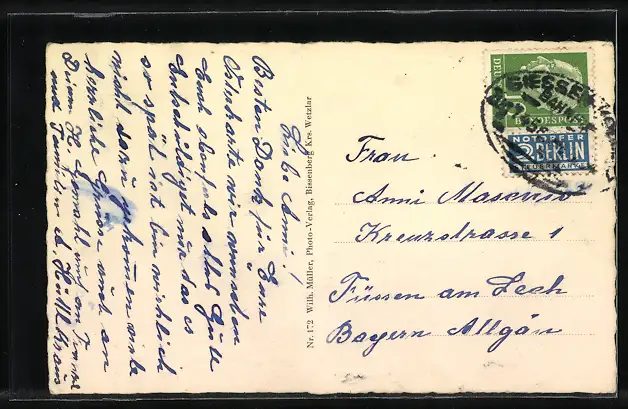 Liebe Anni!
Besten Dank für Eure
Osterkarte wir wünschen
Euch ebenfalls alles Gute
Entschuldigt mir das es
so spät ist bin wirklich
nicht dazu gekommen viele
herzliche Grüsse auch an
Deinen H. Gemahl und an
und Familie
Nr. 172 Wilh. Müller, Photo-Verlag, Bissenberg Krs. Wetzlar
Frau
Anni
Kreuzstrasse 1
Füssen am Lech
Bayern Allgäu
BUNDESPOST
NOTOPFER
2 BERLIN
STEUERMARKE
GIESSEN